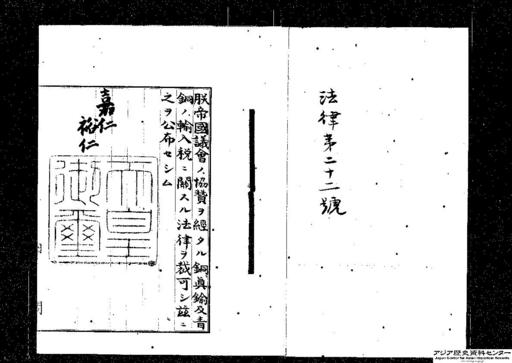 法律第二十二號
朕帝國議會ノ協贊ヲ經タル銅眞鍮及青
銅ノ輸入税ニ關スル法律ヲ裁可シ茲ニ
之ヲ公布セシム
嘉仁
裕仁
天皇
御璽
アジア歴史資料センター
Japan Center for Asian Historical Records